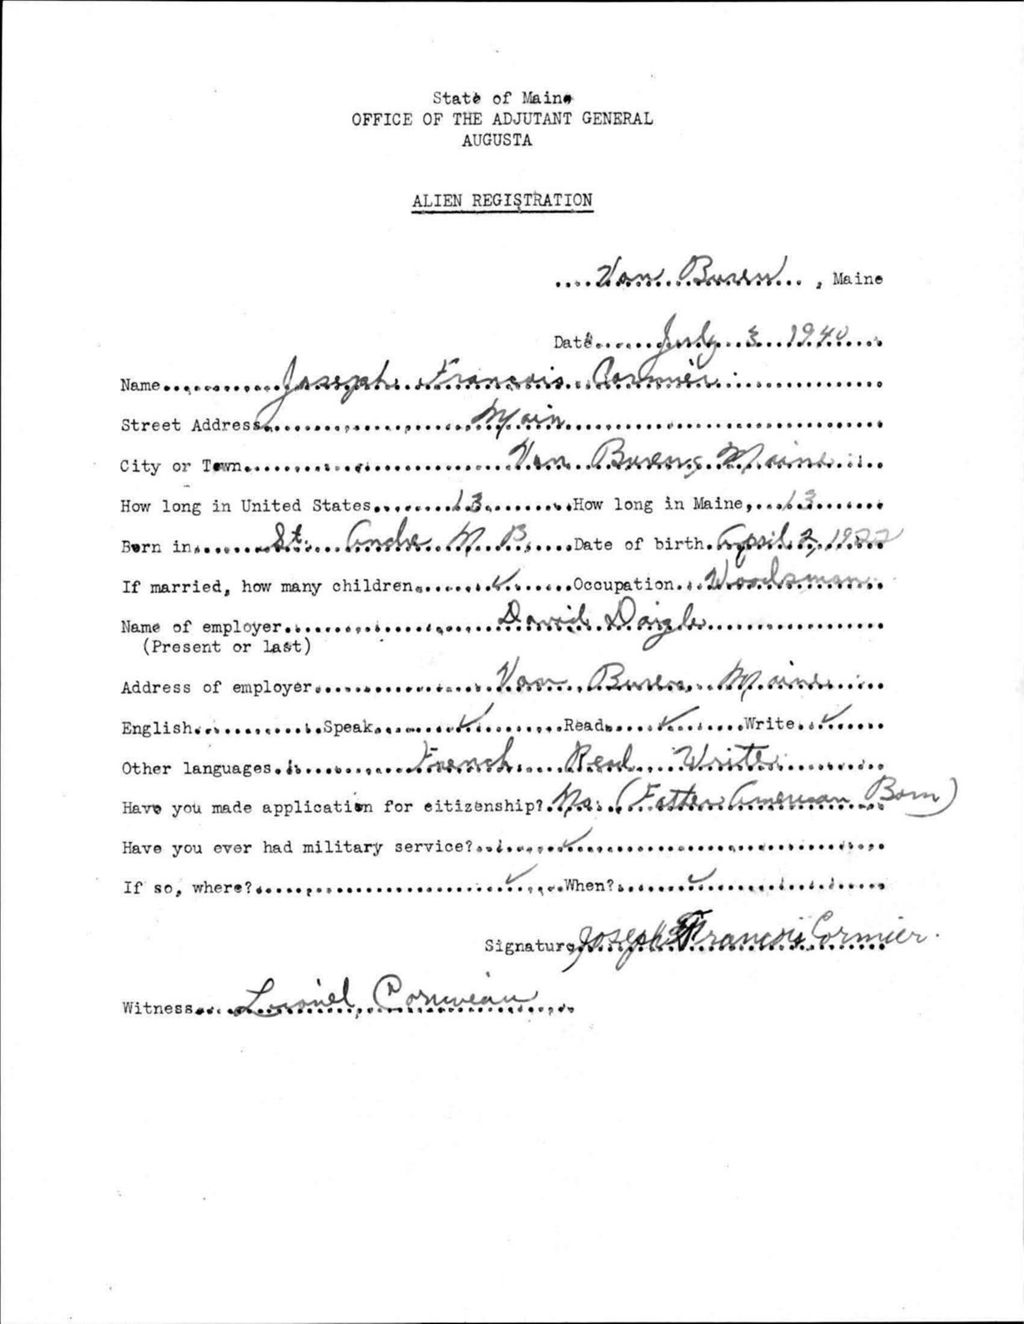 State of Maine
OFFICE OF THE ADJUTANT GENERAL
AUGUSTA
ALIEN REGISTRATION
Van Buren, Maine
Date July 3 1940
Name Joseph Francois Cormier
Street Address Main
City or Town Van Buren, Maine
How long in United States 13 How long in Maine, 13
Born in St. Andre N B, Date of birth April 2, 1922
If married, how many children ✓ Occupation Woodsman
Name of employer David Daigle
(Present or last)
Address of employer Van Buren Maine
English Speak ✓ Read ✓ Write ✓
Other languages French Read Write
Have you made application for citizenship? No. (Father American Born)
Have you ever had military service? ✓
If so, where? ✓ When? ✓
Signature Joseph Francois Cormier
Witness